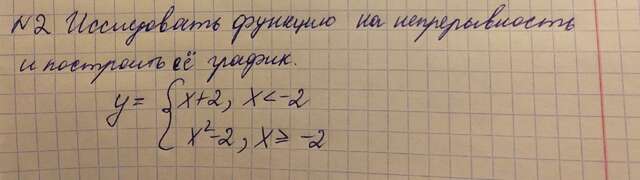 №2 Исследовать функцию на непрерывность
и построить её график.
y = { x+2, x < -2
x²-2, x ≥ -2